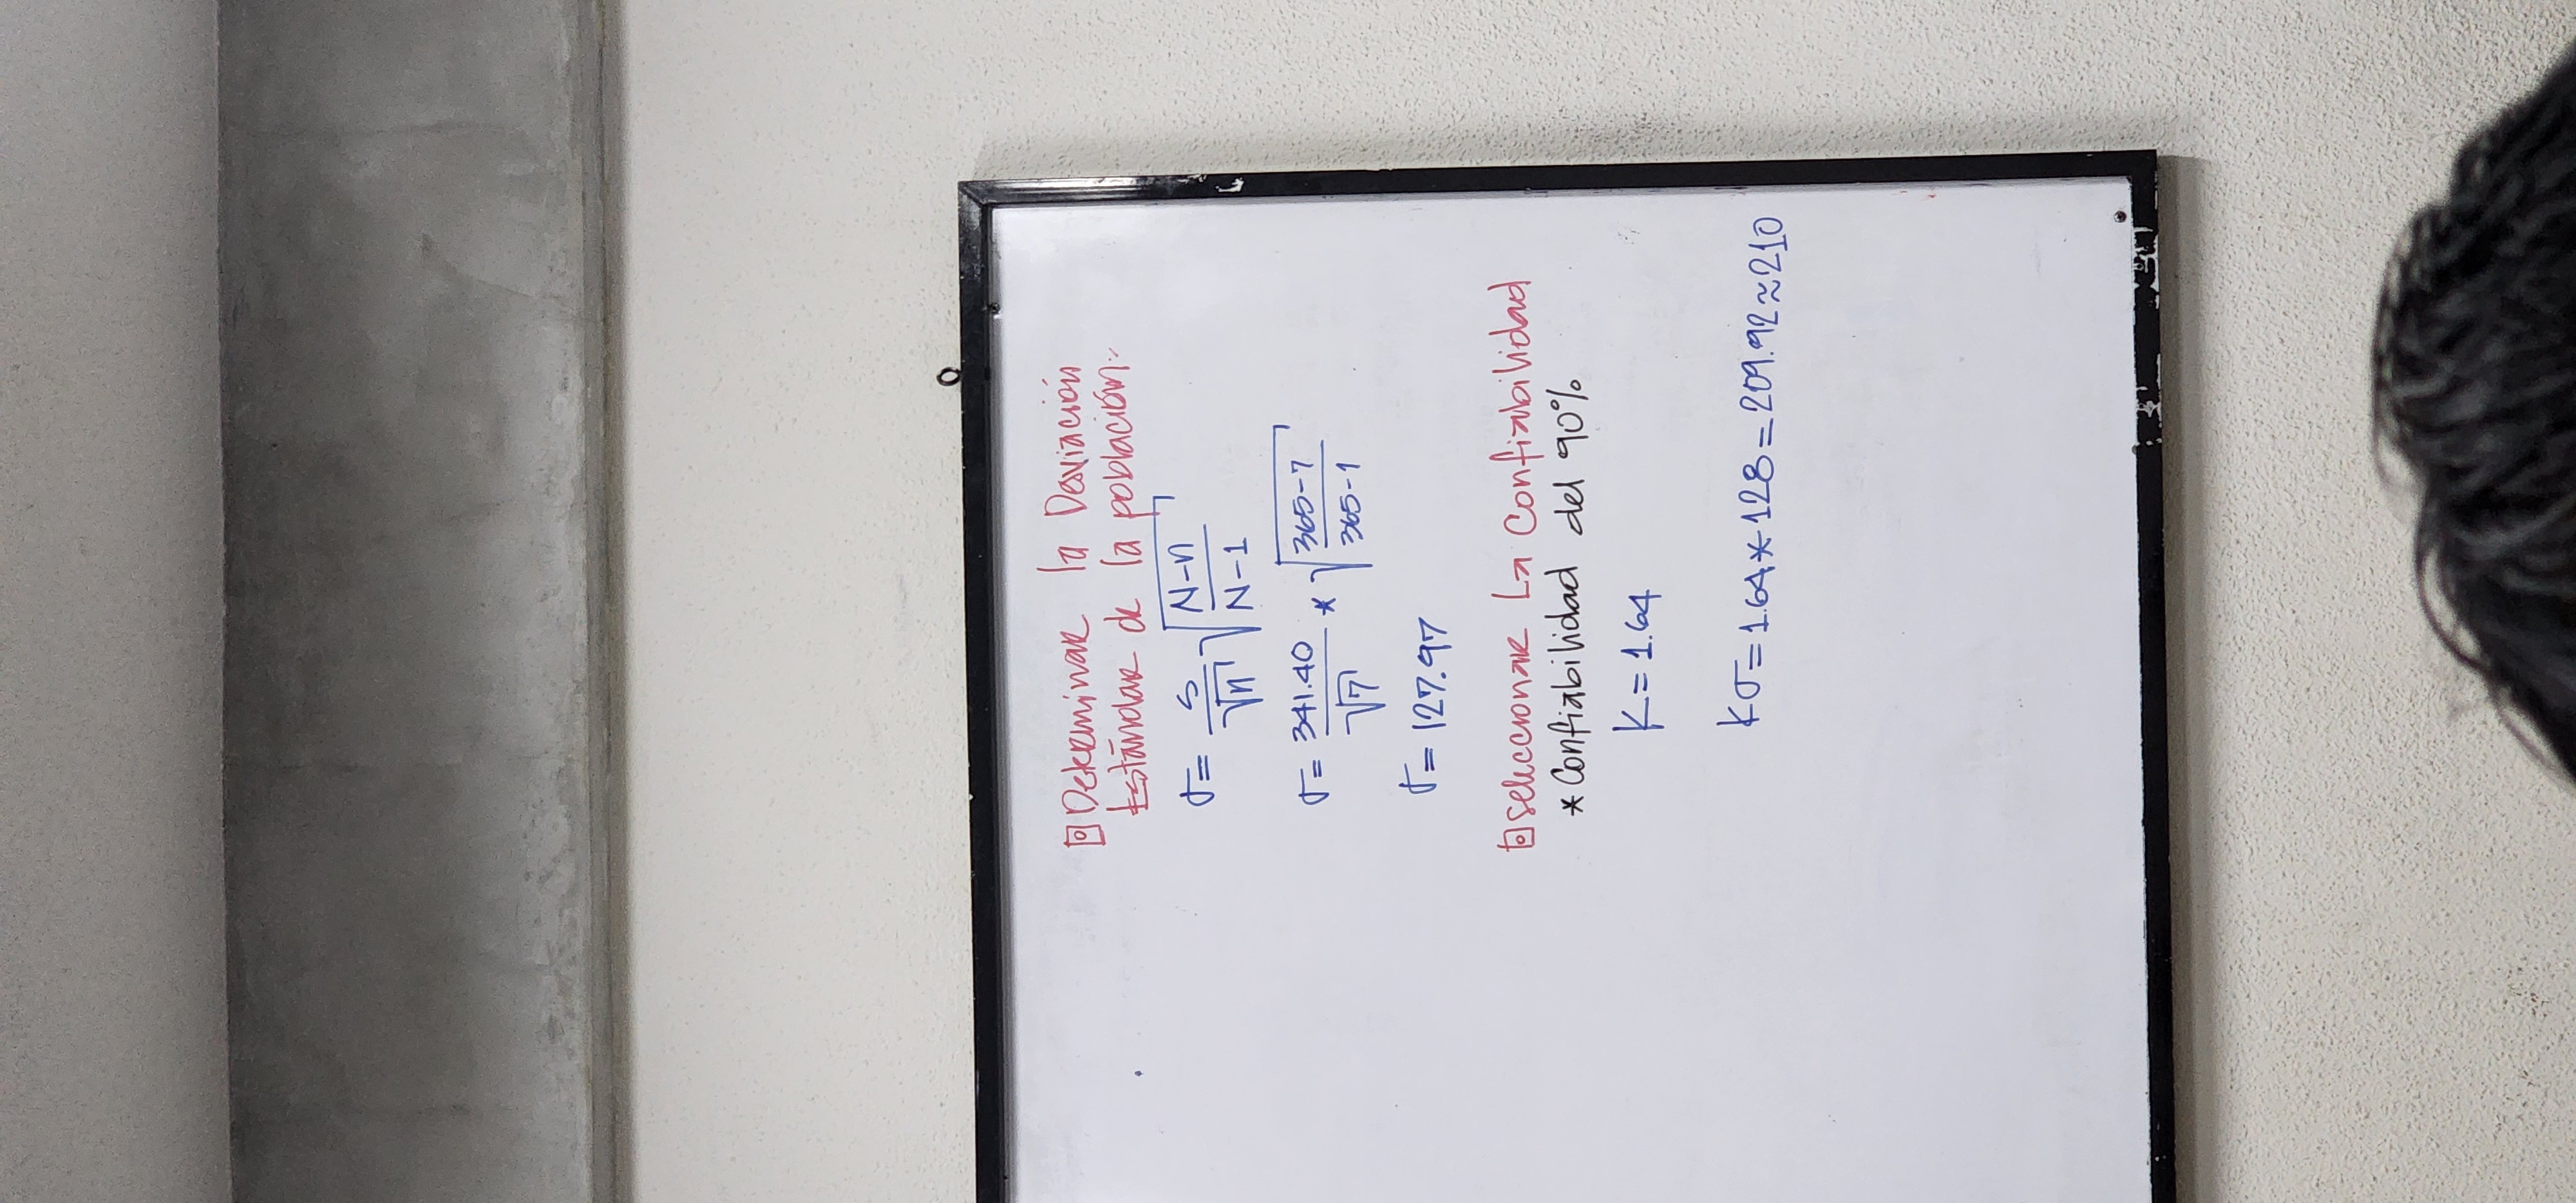 Determinar la Desviación
Estándar de la población:
σ = s/√n √(N-n/N-1)
σ = 341.40/√7 * √(365-7/365-1)
σ = 127.97
seleccionar La Confiabilidad
* Confiabilidad del 90%
K = 1.64
kσ = 1.64 * 128 = 209.92 ≈ 210